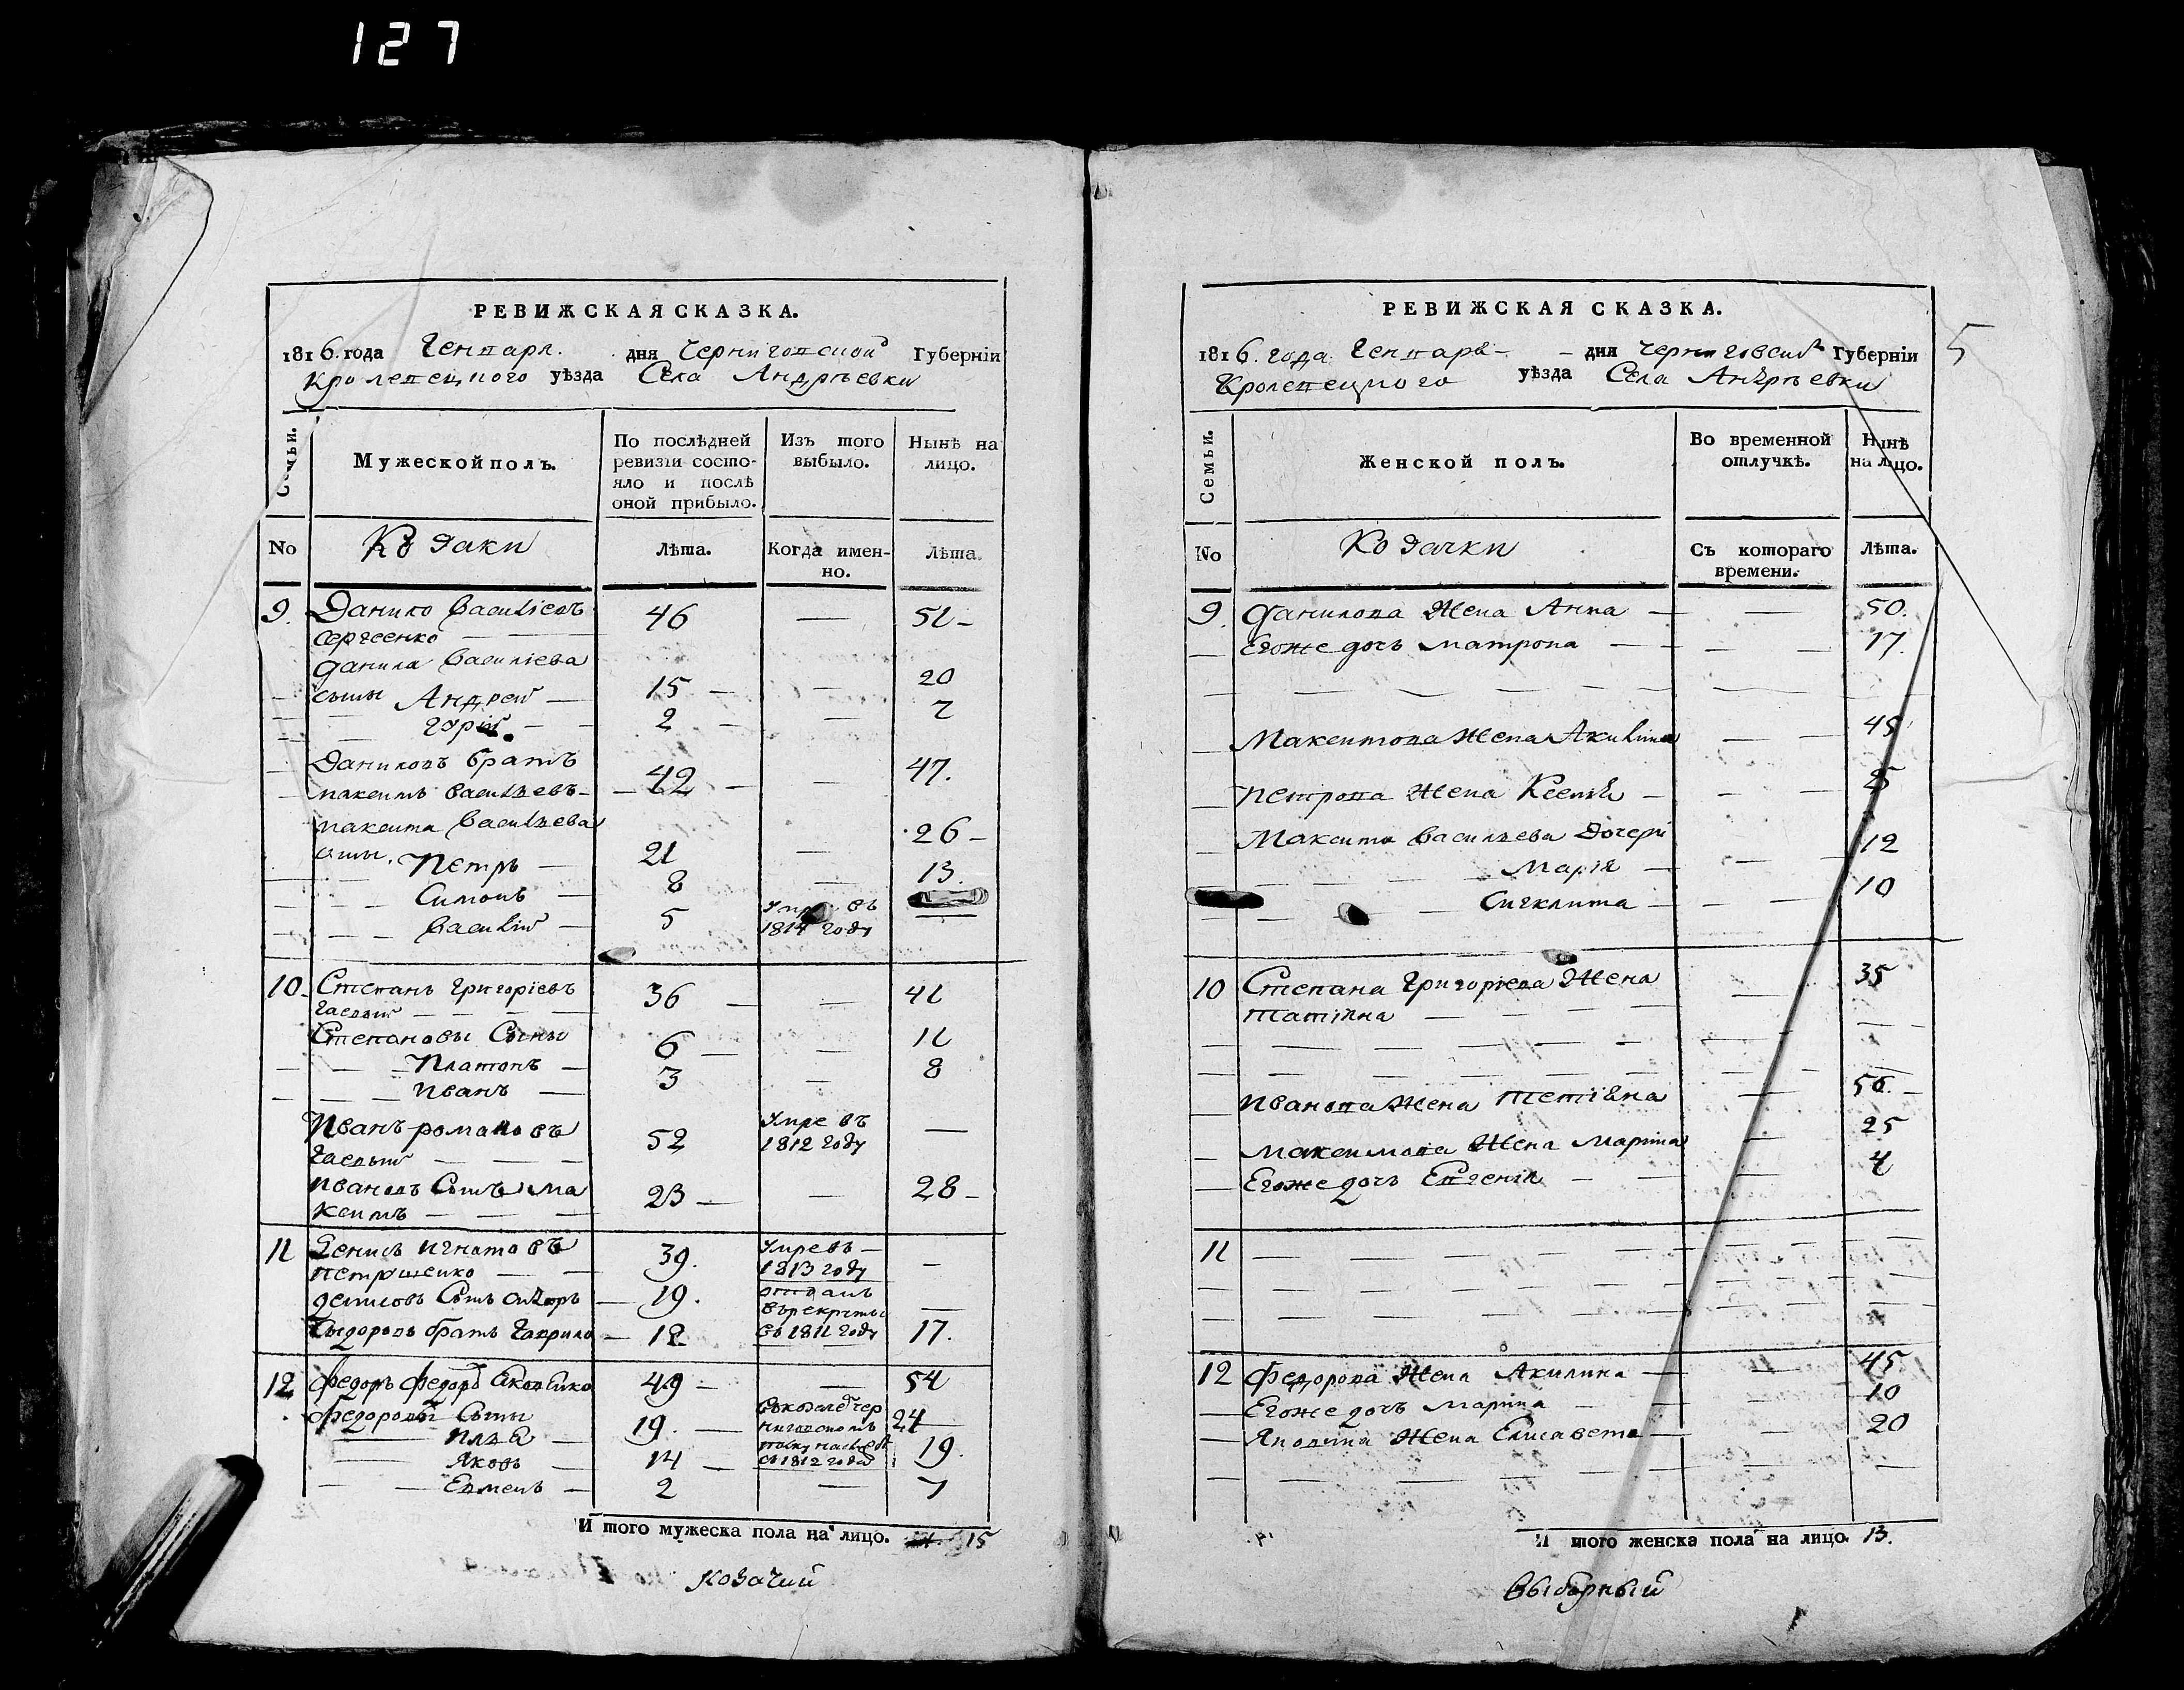 127
РЕВИЖСКАЯ СКАЗКА.
1816. года Генваря. дня Черниговской Губерніи
Кролевецкого уѣзда Села Андрѣевки
Семьи.
Мужеской полъ.
По послѣдней ревизіи состояло и послѣ оной прибыло.
Изъ того выбыло.
Нынѣ на лицо.
No
Козаки
Лѣта.
Когда именно.
Лѣта.
9. Данило Василіевъ 46 — 51 —
Сергеенко — —
Данила Василіева
сыны Андрей — 15 — — 20
2 — — 7
Даниловъ братъ
максимъ Васильевъ — 42 — — 47.
максима Васильева
сыны. Петръ — 21 — 26 —
Симонъ — 8 — 13.
Василій — 5 Умре въ 1814 году —
10. Степанъ Григоріевъ 36 — — 41
Степановы Сыны
Платонъ — 6 — — 11
Иванъ — 3 — 8
Иванъ романовъ 52 Умре въ 1812 году —
Ивановъ Сынъ Ма
ксимъ — — — 23 — — 28 —
11 Денисъ Игнатовъ 39. Умре въ — 1813 году —
петрушенко — —
денисовъ Сынъ Сидоръ — 19. отданъ в рекруты —
Сыдоровъ братъ Гаврило — 12 въ 1811 году 17.
12 Федоръ Федоровъ 49 — — 54
Федоровы Сыны
Илья — 19. — 24
въ 1812 года
Яковъ — 14 — 19.
2 — — 7
И того мужеска пола на лицо. 15
козачий
РЕВИЖСКАЯ СКАЗКА.
5
1816. года Генваря — — дня Черниговской Губерніи
Кролевецкого уѣзда Села Андрѣевки
Семьи.
Женской полъ.
Во временной отлучкѣ.
Нынѣ на лицо.
No
Козачки
Съ котораго времени.
Лѣта.
9. Данилова Жена Анна — — 50.
— Егоже дочь матрона — — — — 17.
— Максимова Жена Акилина — — 45
— петрова Жена Ксенія — — —
— Максима Васильева Дочери
Марія — — — 12
Сигклита — — — 10
10 Степана Григоріева Жена — 35
татіяна — — — —
— Иванова Жена Тетіяна — 50. —
— максимова Жена Марина — 25
— Егоже дочь Евгенія — — — 4
11 — — — — — — — —
12 Федорова Жена Акилина — — 45
— Егоже дочь Марина — — 10
— Яковлна Жена Елисавета — — 20
И того женска пола на лицо. 13.
Выборный